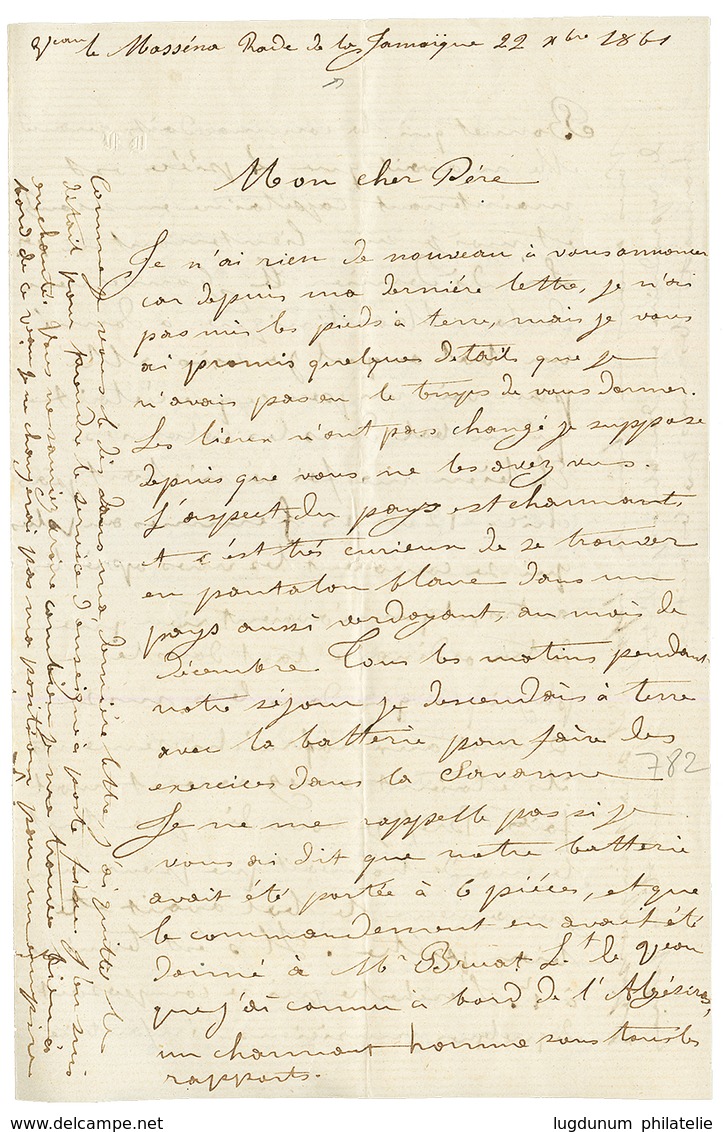 Veau le Masséna Rade de la Jamaïque 22 xbre 1861
Mon cher Péré
Je n'ai rien de nouveau à vous annoncer
car depuis ma derniére lettre, je n'ai
pas mis les pieds à terre, mais je vous
ai promis quelques détails que je
n'avais pas eu le temps de vous donner.
Les lieux n'ont pas changé je suppose
depuis que vous ne les avez vus.
L'aspect du pays est charmant,
et c'est trés curieux de se trouver
en pantalon blanc dans un
pays aussi verdoyant, au mois de
Décembre Tous les matins pendant
notre séjour je descendais à terre
avec la batterie pour faire des
exercices dans la Savanne
782
Je ne me rappelle pas si je
vous ai dit que notre batterie
avait été portée à 6 piéces, et que
le commandement en avait été
donné à Mr Bruat Lt. de Veau
que j'ai connu à bord de l'Algésiras,
un charmant homme sous tous les
rapports.
Comme je vous le dis dans ma derniére lettre j'ai quitté le
détail pour prendre le service d'enseigne à porte J'en suis
enchanté. Vous ne sauriez croire combien je me trouve bien à
bord de ce veau je ne changerai pas ma position pour un empire
lugdunum philatelie